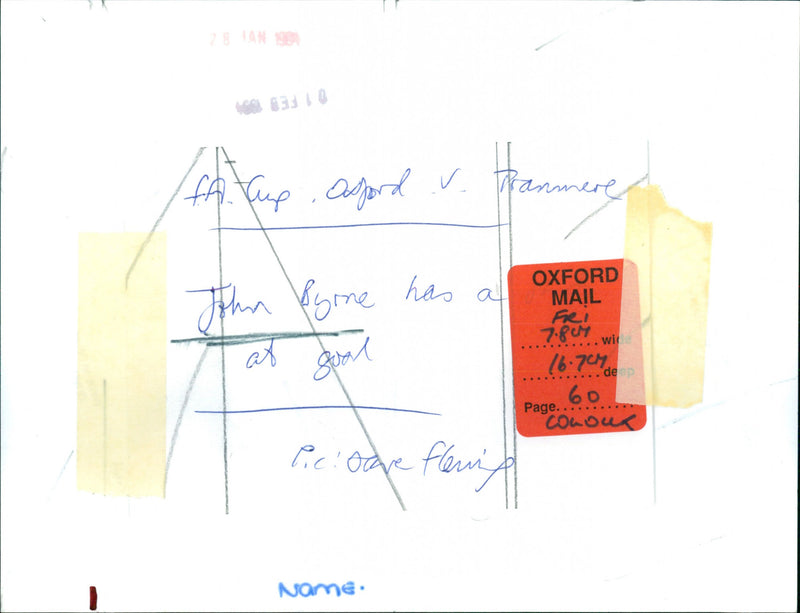 28 JAN 1994
01 FEB 1994
FA. Cup. Oxford v. Tranmere
John Byrne has a
at goal
Pic: Dave Fleming
OXFORD
MAIL
FRI
7.8cm wide
16.7cm deep
Page 60
COLOUR
Name.